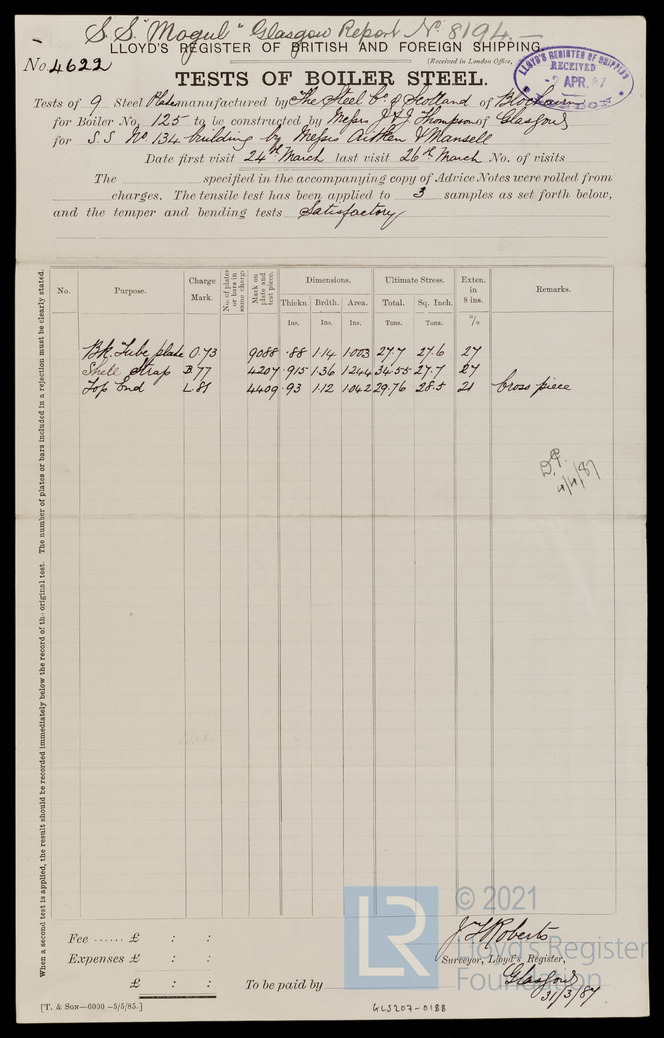 S.S. "Mogul" Glasgow Report No. 8194.—
LLOYD'S REGISTER OF BRITISH AND FOREIGN SHIPPING.
No. 4622
(Received in London Office,
LLOYD'S REGISTER OF SHIPPING RECEIVED 2 APR. 87 LONDON
TESTS OF BOILER STEEL.
Tests of 9 Steel Plates manufactured by The Steel Co. of Scotland of Blochairn
for Boiler No. 125 to be constructed by Messrs J & J Thompson of Glasgow
for S.S No 134 building by Messrs Aitken & Mansell
Date first visit 24th March last visit 26th March No. of visits
The specified in the accompanying copy of Advice Notes were rolled from
charges. The tensile test has been applied to 3 samples as set forth below,
and the temper and bending tests Satisfactory
When a second test is applied, the result should be recorded immediately below the record of the original test. The number of plates or bars included in a rejection must be clearly stated.
No. Purpose. Charge Mark. No. of plates or bars in same charge Mark on plate and test piece. Dimensions. Ultimate Stress. Exten. in 8 ins. Remarks.
Thickn. Brdth. Area. Total. Sq. Inch.
Ins. Ins. Ins. Tons. Tons. %
Bk. Tube plate O.73 9088 .88 1.14 1.003 27.7 27.6 27
Shell Strap B.77 4207 .915 1.36 1.244 34.55 27.7 27
Top End L.81 4409 .93 1.12 1.042 29.76 28.5 21 Cross piece
D.P.
4/4/87
Fee ...... £ : :
Expenses £ : :
£ : :
To be paid by
J. T. Roberts
Surveyor, Lloyd's Register,
Glasgow
31/3/87
[T. & Son—6000 —5/5/85.]
GLS207-0188
LR © 2021
Lloyd's Register
Foundation